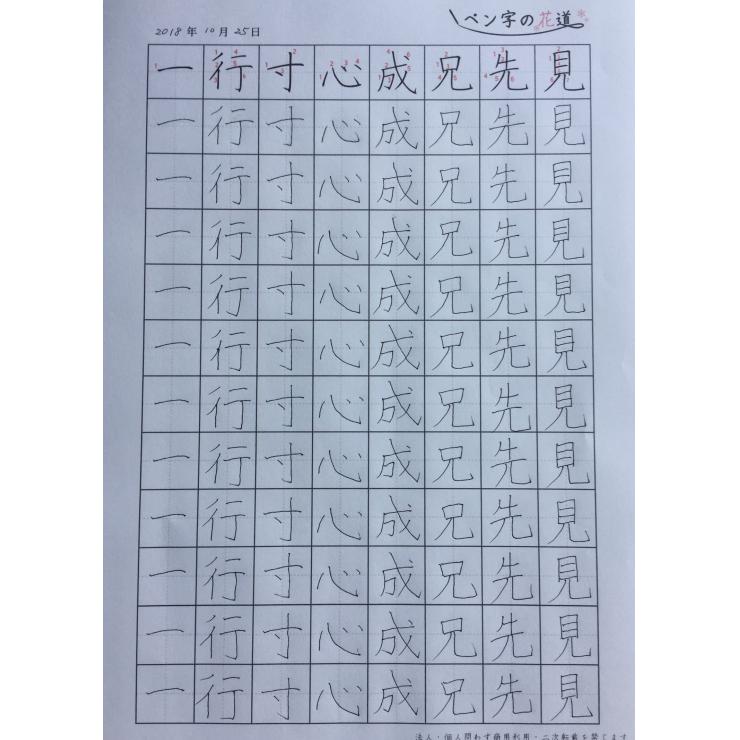 2018年10月25日
ペン字の花道
一行寸心成兄先見
一行寸心成兄先見
一行寸心成兄先見
一行寸心成兄先見
一行寸心成兄先見
一行寸心成兄先見
一行寸心成兄先見
一行寸心成兄先見
一行寸心成兄先見
一行寸心成兄先見
一行寸心成兄先見
一行寸心成兄先見
法人・個人問わず商用利用・二次転載を禁じます